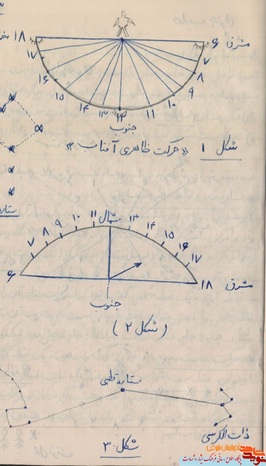 ۱۸ مشرق ۶
۱۷ ۷
۱۶ ۸
۱۵ ۹
۱۴ ۱۳ ۱۲ ۱۱ ۱۰
جنوب
شکل ۱ «حرکت ظاهری آفتاب»
۶ ۷ ۸ ۹ ۱۰ ۱۱ شمال ۱۳ ۱۴ ۱۵ ۱۶ ۱۷ ۱۸
مشرق
جنوب
(شکل ۲)
ستاره قطبی
ذات الکرسی
شکل ۳